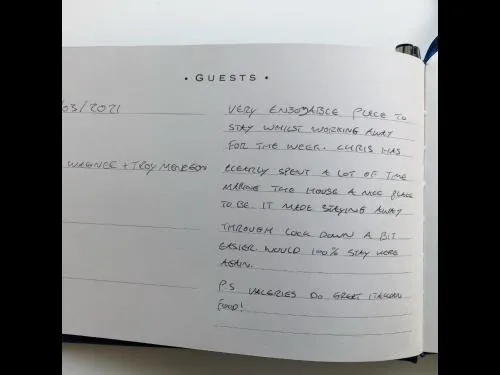 • GUESTS •
/03/2021
WAGNER + TROY
VERY ENJOYABLE PLACE TO
STAY WHILST WORKING AWAY
FOR THE WEEK. CHRIS HAS
CLEARLY SPENT A LOT OF TIME
MAKING THE HOUSE A NICE PLACE
TO BE. IT MADE STAYING AWAY
THROUGH LOCK DOWN A BIT
EASIER. WOULD 100% STAY HERE
AGAIN.
P.S VALERIES DO GREAT ITALIAN
FOOD!